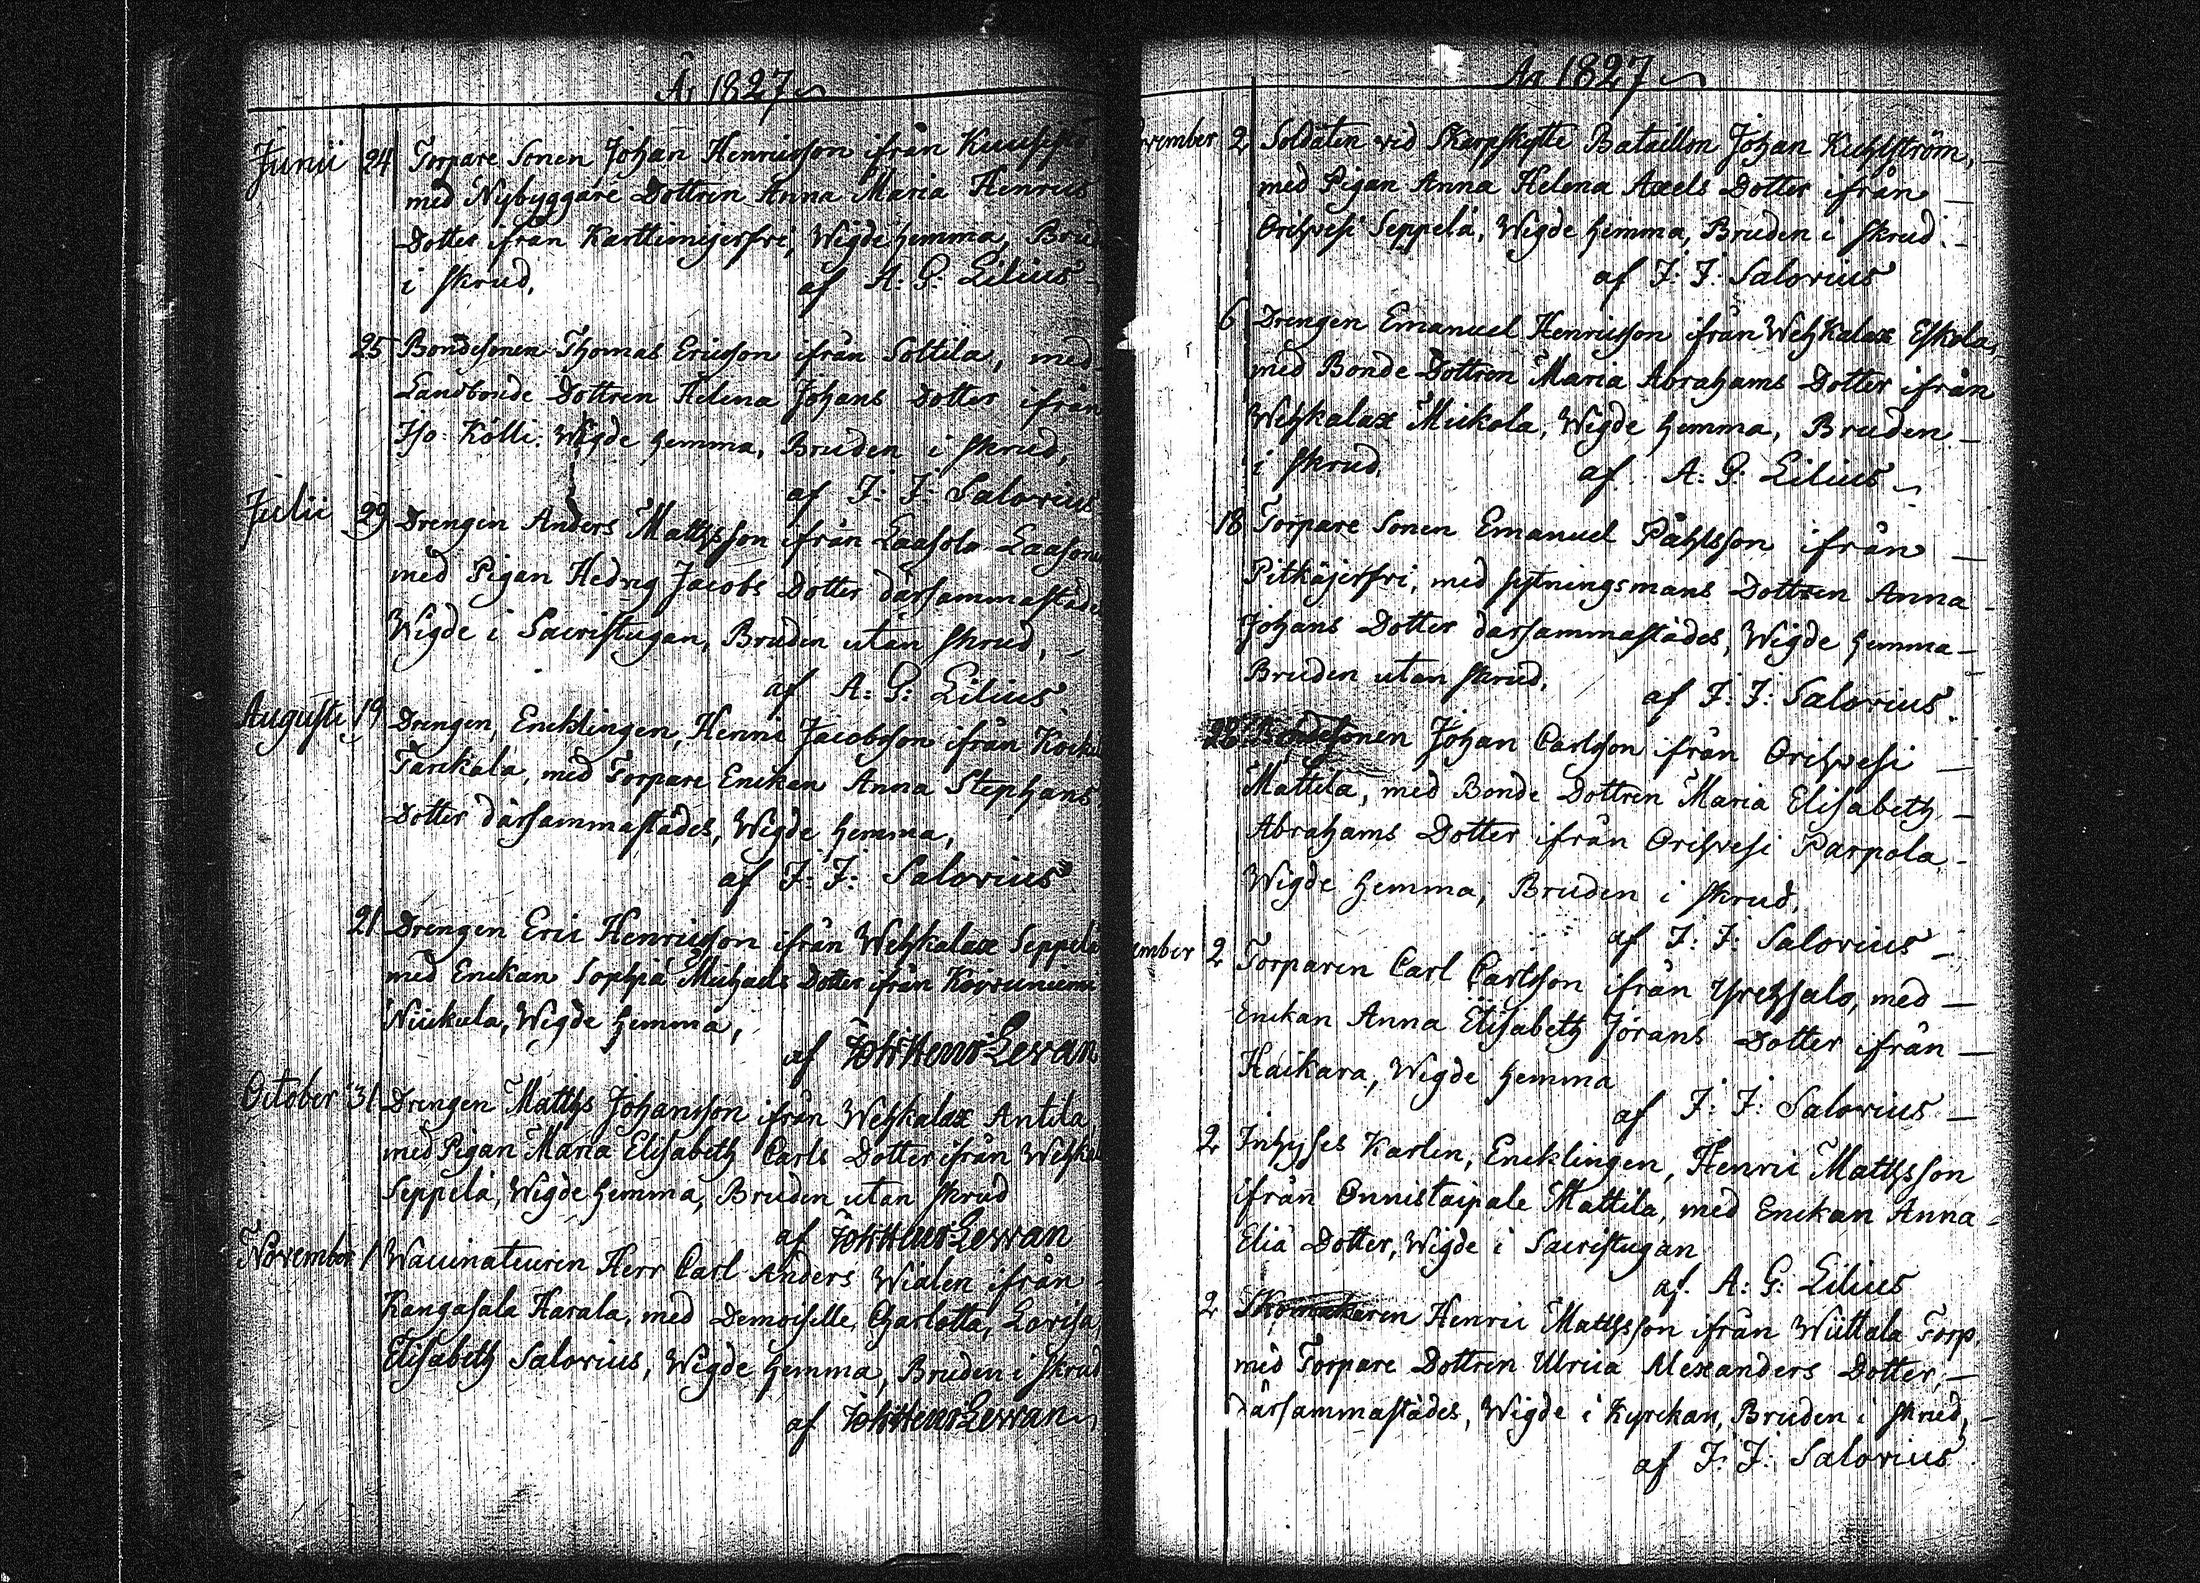 År 1827
Junii 24 Torpare Sonen Johan Henricsson ifrån
med Nybyggare Dottren Anna Maria Henrics
Dotter ifrån Karttimejerfvi, Wigde hemma, Brud
i skrud, af A: G: Lilius
25 Bondesonen Thomas Ericsson ifrån Sottila, med
Landbonde Dottren Helena Johans Dotter ifrån
Iso Kölli. Wigde hemma, Bruden i skrud,
af J: J: Salovius
Julii 29 Drengen Anders Mattsson ifrån Laasola Laasone
med Pigan Hedvig Jacobs Dotter därsammastäde
Wigde i Sacristugan, Bruden utan skrud,
af A: G: Lilius
Augusti 19 Drengen, Encklingen, Henric Jacobsson ifrån
Tarckala, med Torpare Enckan Anna Stephans
Dotter därsammastädes, Wigde hemma,
af J: J: Salovius
21 Drengen Eric Henricsson ifrån Wehkalax Seppelä
med Enckan Sophia Michaels Dotter ifrån Koivuniemi
Niickula, Wigde hemma,
af Joh Henr Levan
October 31 Drengen Matths Johansson ifrån Wehkalax Antila
med Pigan Maria Elisabeth Carls Dotter ifrån Wehkal
Seppelä, Wigde hemma, Bruden utan skrud
af Joh Henr Levan
November 1 Waccinateuren Herr Carl Anders Wialen ifrån
Kangasala Harala, med Demoiselle, Charlotta, Lovisa,
Elisabeth Salovius, Wigde hemma, Bruden i skrud
af Joh Henr Levan
År 1827
vember 2 Soldaten vid Skarpskytte Bataillon Johan Kuhlström,
med Pigan Anna Helena Axels Dotter ifrån
Orihvesi Seppelä, Wigde hemma, Bruden i skrud.
af J: J: Salovius
6 Drengen Emanuel Henricsson ifrån Wehkalax Eskola,
med Bonde Dottren Maria Abrahams Dotter ifrån
Wehkalax Mickola, Wigde hemma, Bruden
i skrud. af A: G: Lilius
18 Torpare Sonen Emanuel Påhlsson ifrån
Pitkäjerfvi, med sytningsmans Dottren Anna
Johans Dotter därsammastädes, Wigde hemma
Bruden utan skrud. af J: J: Salovius.
Bondesonen Johan Carlsson ifrån Orihvesi
Mattila, med Bonde Dottren Maria Elisabeth
Abrahams Dotter ifrån Orihvesi Parpola
Wigde hemma, Bruden i skrud.
af J: J: Salovius
ember 2 Torparen Carl Carlsson ifrån Yrehsalo, med
Enckan Anna Elisabeth Jörans Dotter ifrån
Haikara, Wigde hemma
af J: J: Salovius
2 Inhyses Karlen, Encklingen, Henric Mattsson
ifrån Onnistaipale Mattila, med Enckan Anna
Elia Dotter, Wigde i Sacristugan
af. A: G: Lilius
2 Skomakaren Henric Mattsson ifrån Wiittala Torp,
med Torpare Dottren Ulrica Alexanders Dotter,
därsammastädes, Wigde i Kyrckan, Bruden i skrud,
af J: J: Salovius